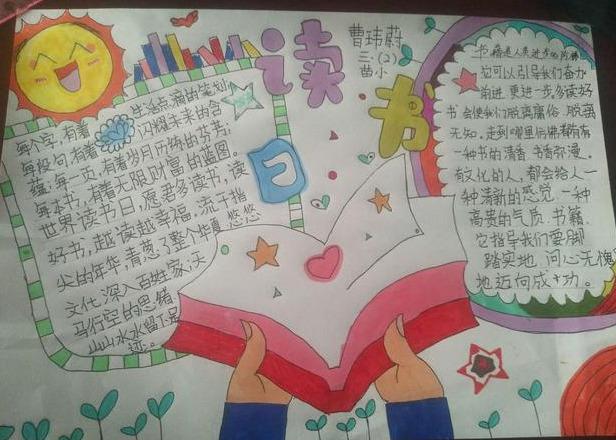 读
书
日
曹玮蔚
三·(2)
苗小
每个字,有着生活点滴的策划
每段句,有着闪耀未来的含
蕴;每一页,有着岁月历炼的芬芳;
每本书,有着无限财富的蓝图。
世界读书日,愿君多读书,读
好书,越读越幸福,流于指
尖的年华,青葱了整个华夏悠悠
文化,深入百姓家;天
马行空的思绪,
山山水水留下足
迹。
书籍是人类进步的阶梯
它可以引导我们奋力
前进,更进一步多读好
书,会使我们脱离庸俗,脱离
无知,走到哪里仿佛都有
一种书的清香,书香弥漫。
有文化的人,都会给人一
种清新的感觉,一种
高贵的气质,书籍,
它指导我们要脚
踏实地,问心无愧
地迈向成功。